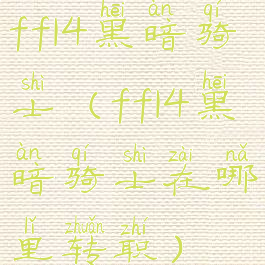 hēi àn qí
ff14黑暗骑
shì hēi
士(ff14黑
àn qí shì zài nǎ
暗骑士在哪
lǐ zhuǎn zhí
里转职)